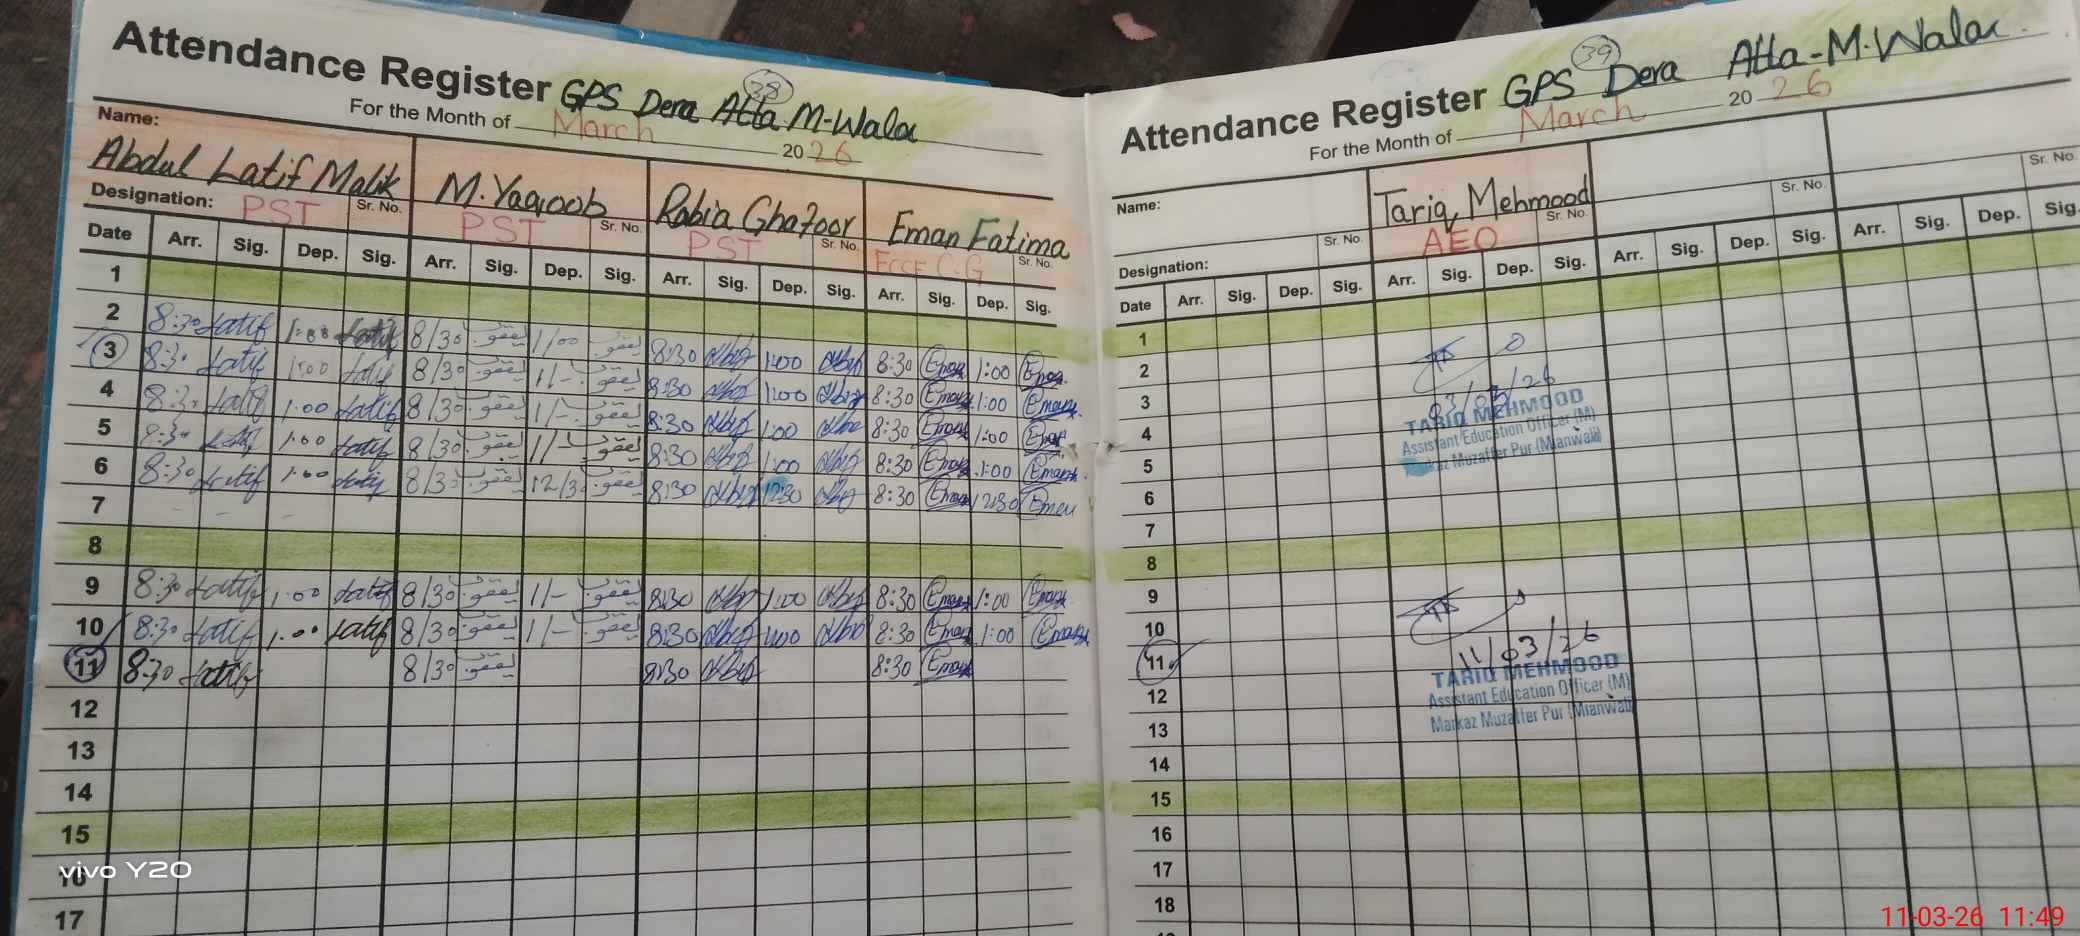 Attendance Register GPS Dera Atta M-Wala
38
For the Month of March 2026
Name:
Abdul Latif Malik M. Yaqoob Rabia Ghafoor Eman Fatima
Designation: PST Sr. No. PST Sr. No. PST Sr. No. ECCE C.G Sr. No.
Date Arr. Sig. Dep. Sig. Arr. Sig. Dep. Sig. Arr. Sig. Dep. Sig. Arr. Sig. Dep. Sig.
1
2 8:30 Latif 1:00 Latif 8/30 یعقوب 1/00 یعقوب 8:30 1:00 8:30 Eman 1:00 Eman
3 8:30 Latif 1:00 Latif 8/30 یعقوب 1/- یعقوب 8:30 1:00 8:30 Eman 1:00 Eman
4 8:30 Latif 1:00 Latif 8/30 یعقوب 1/- یعقوب 8:30 1:00 8:30 Eman 1:00 Eman
5 8:30 Latif 1:00 Latif 8/30 یعقوب 1/- یعقوب 8:30 1:00 8:30 Eman 1:00 Eman
6 8:30 Latif 1:00 Latif 8/30 یعقوب 12/30 یعقوب 8:30 12:30 8:30 Eman 12:30 Eman
7
8
9 8:30 Latif 1:00 Latif 8/30 یعقوب 1/- یعقوب 8:30 1:00 8:30 Eman 1:00 Eman
10 8:30 Latif 1:00 Latif 8/30 یعقوب 1/- یعقوب 8:30 1:00 8:30 Eman 1:00 Eman
11 8:30 Latif 8/30 یعقوب 8:30 8:30 Eman
12
13
14
15
16
17
vivo Y20
Attendance Register GPS Dera Atta-M.Wala
39
For the Month of March 2026
Name: Tariq Mehmood
Sr. No. Sr. No. Sr. No. Sr. No.
Designation: AEO
Date Arr. Sig. Dep. Sig. Arr. Sig. Dep. Sig. Arr. Sig. Dep. Sig. Arr. Sig. Dep. Sig.
1
2
3 03/03/26
TARIQ MEHMOOD
4 Assistant Education Officer (M)
Markaz Muzaffer Pur (Mianwali)
5
6
7
8
9
10
11 11/03/26
TARIQ MEHMOOD
12 Assistant Education Officer (M)
Markaz Muzaffer Pur (Mianwali)
13
14
15
16
17
18
11-03-26 11:49